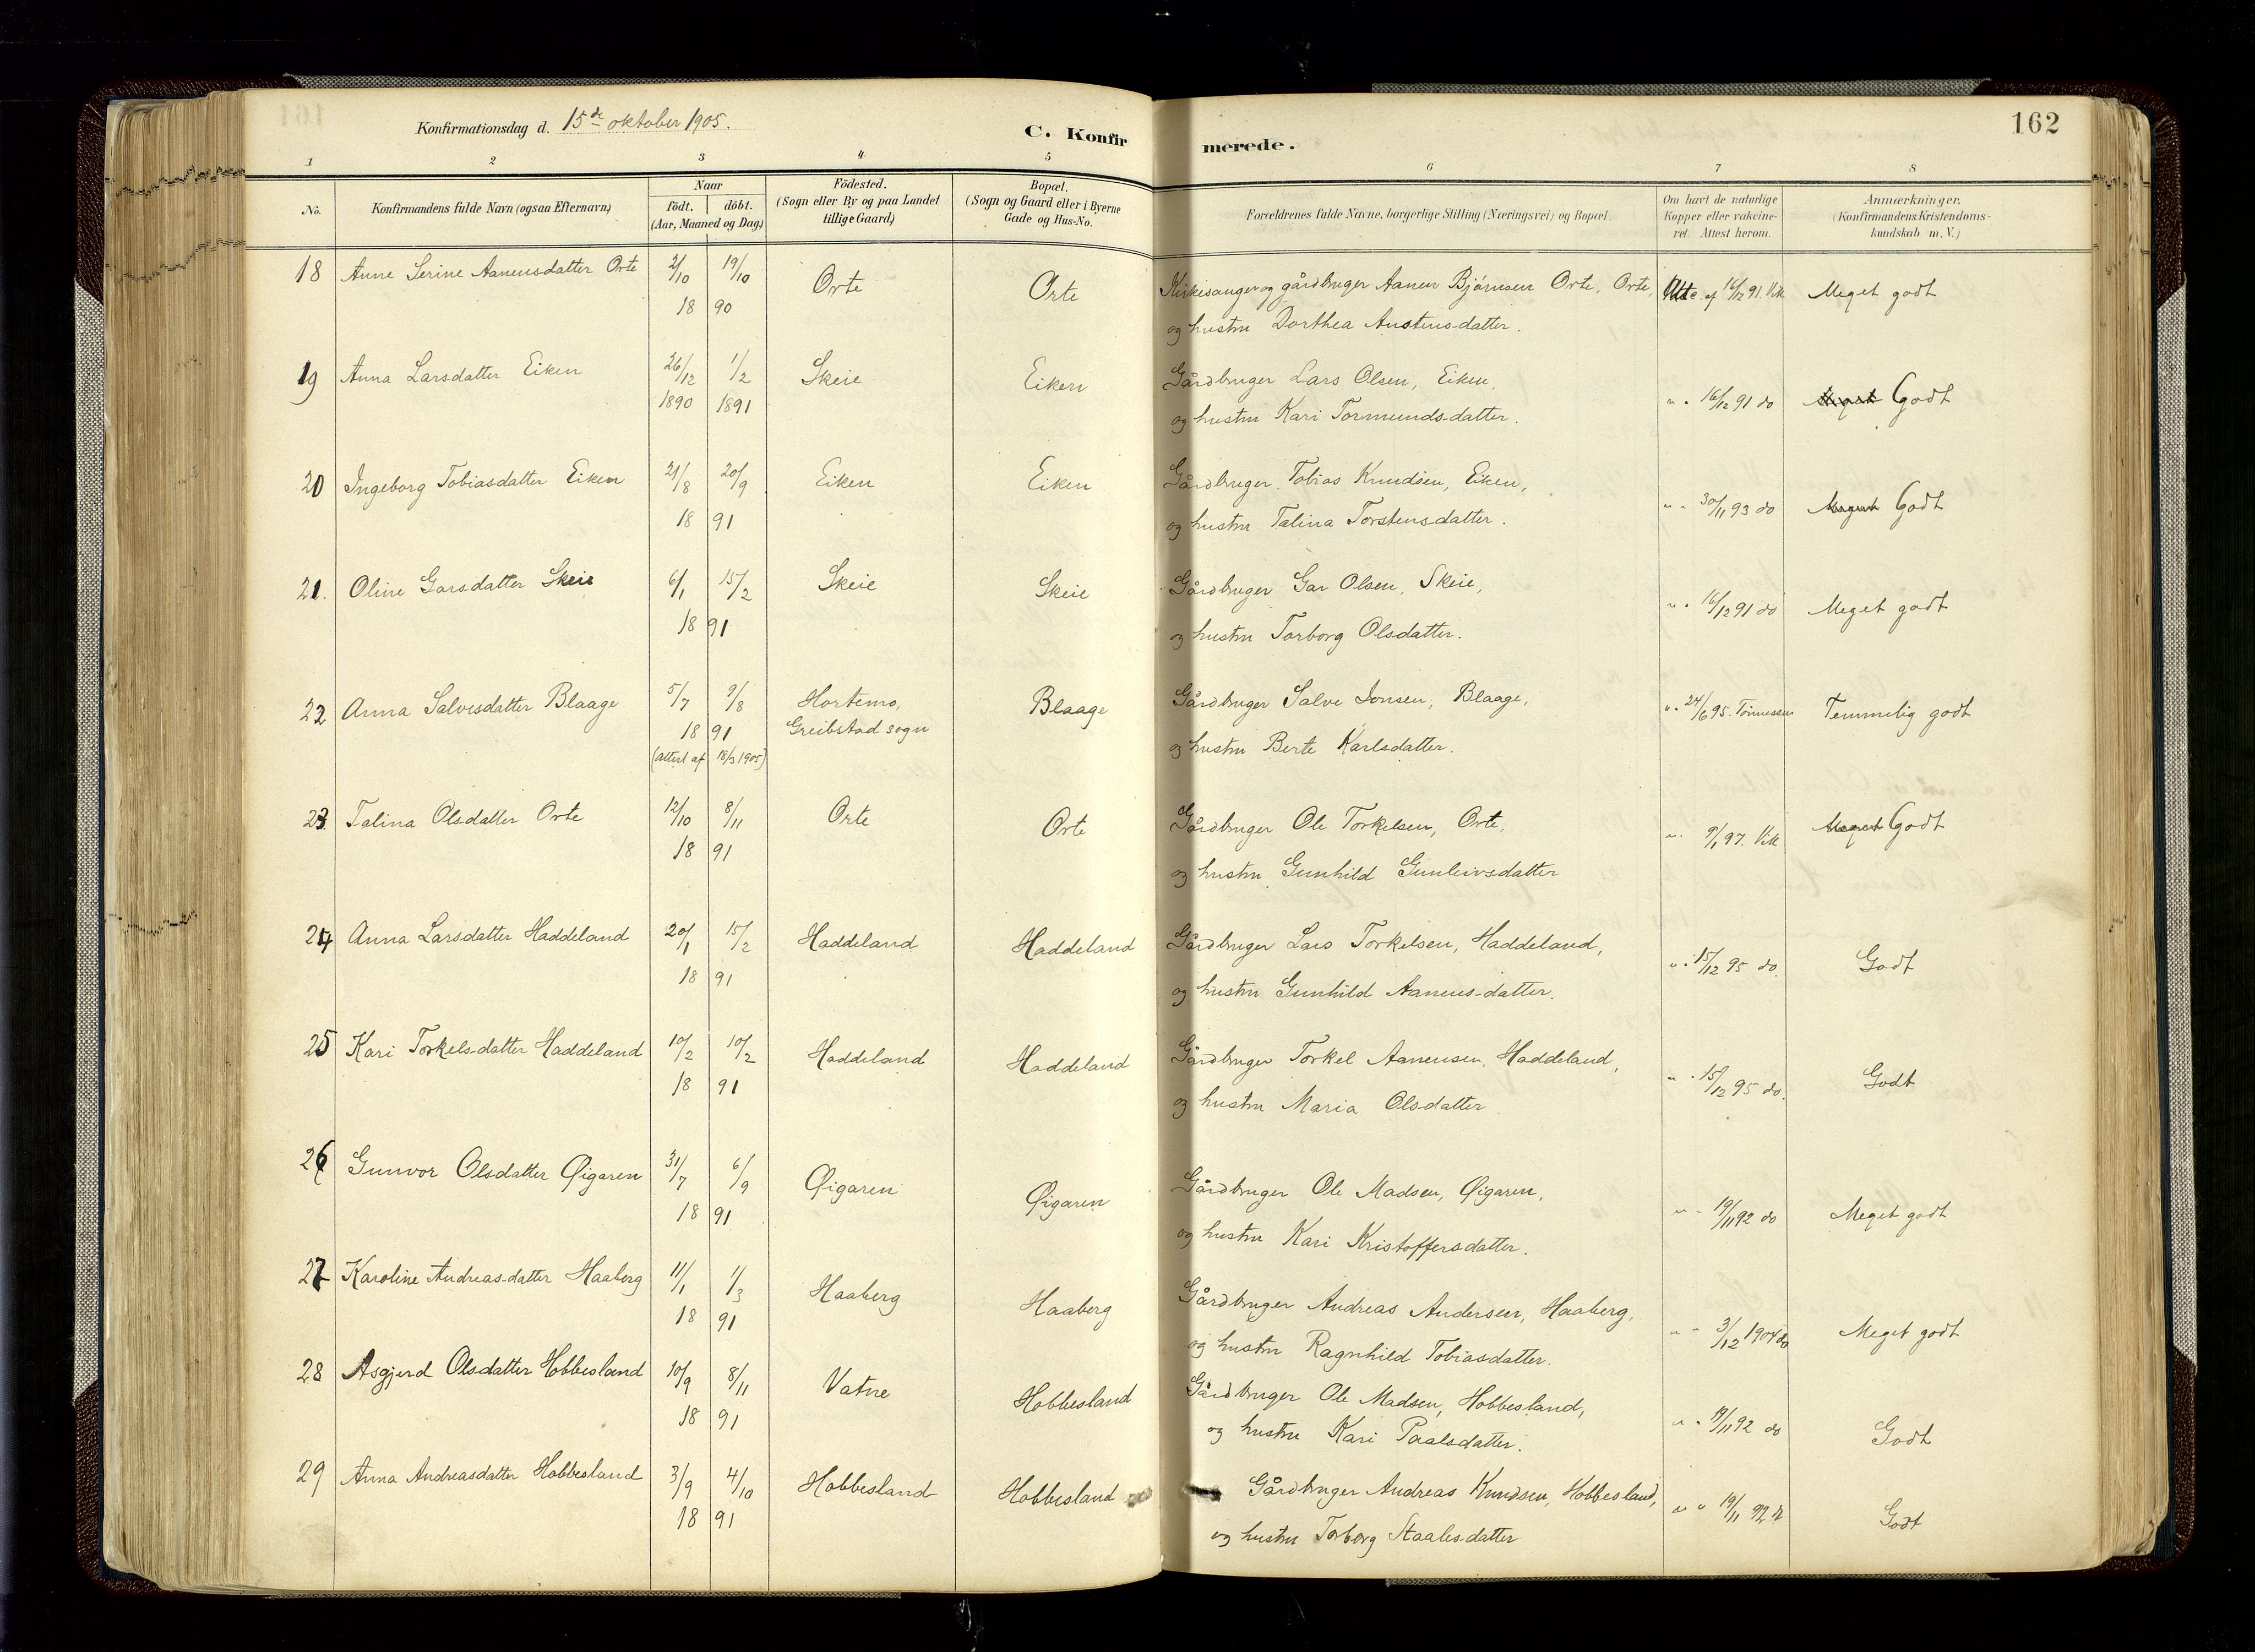 162
Konfirmationsdag d. 15de oktober 1905.
C. Konfirmerede.
1 2 3 4 5 6 7 8
No.
Konfirmandens fulde Navn (ogsaa Efternavn)
Naar
født. døbt.
(Aar, Maaned og Dag)
Födested.
(Sogn eller By og paa Landet
tillige Gaard)
Bopæl.
(Sogn og Gaard eller i Byerne
Gade og Hus-No.
Forældrenes fulde Navne, borgerlige Stilling (Næringsvei) og Bopæl.
Om havt de naturlige
Kopper eller vakcine-
ret. Attest herom.
Anmærkninger.
(Konfirmandens Kristendoms-
kundskab m. V.)
18 Anne Serine Aanensdatter Orte 2/10 19/10 Orte Orte Kirkesanger og gårdbruger Aanen Bjørnsen Orte, Orte, Att. af 16/12 91. Vik Meget godt
18 90 og hustru Dorthea Austensdatter.
19 Anna Larsdatter Eiken 26/12 1/2 Skeie Eiken Gårdbruger Lars Olsen, Eiken,
1890 1891 og hustru Kari Tormunds-datter. " " 16/12 91 do Meget Godt
20 Ingeborg Tobiasdatter Eiken 21/8 20/9 Eiken Eiken Gårdbruger Tobias Knudsen, Eiken,
18 91 og hustru Talina Torstensdatter. " " 30/11 93 do Meget Godt
21. Oline Garsdatter Skeie 6/1 15/2 Skeie Skeie Gårdbruger Gar Olsen, Skeie,
18 91 og hustru Torborg Olsdatter. " " 16/12 91 do Meget godt
22 Anna Salvesdatter Blaage 5/7 9/8 Hortemo, Blaage Gårdbruger Salve Jonsen, Blaage, " " 24/6 95. Tønnessen Temmelig godt
18 91 Greibstad sogn og hustru Berte Karlsdatter.
(attest af 18/3 1905)
23 Talina Olsdatter Orte 12/10 8/11 Orte Orte Gårdbruger Ole Torkelsen, Orte, " " 9/1 97. Vik Meget Godt
18 91 og hustru Gunhild Gunleivsdatter
24 Anna Larsdatter Haddeland 20/1 15/2 Haddeland Haddeland Gårdbruger Lars Torkelsen, Haddeland,
18 91 og hustru Gunhild Aanens-datter. " " 15/12 95 do. Godt
25 Kari Torkels-datter Haddeland 10/2 10/2 Haddeland Haddeland Gårdbruger Torkel Aanensen, Haddeland,
18 91 og hustru Maria Olsdatter " " 15/12 95 do. Godt
26 Gunvor Olsdatter Øigaren 31/7 6/9 Øigaren Øigaren Gårdbruger Ole Madsen, Øigaren,
18 91 og hustru Kari Kristoffersdatter. " " 19/11 92 do Meget godt
27 Karoline Andreas-datter Haaberg 11/1 1/3 Haaberg Haaberg Gårdbruger Andreas Andersen, Haaberg,
18 91 og hustru Ragnhild Tobiasdatter. " " 3/12 1904 do Meget godt
28 Asgjerd Olsdatter Hobbesland 10/9 8/11 Vatne Hobbesland Gårdbruger Ole Madsen, Hobbesland,
18 91 og hustru Kari Paalsdatter. " " /11 92 do Godt
29 Anna Andreasdatter Hobbesland 3/9 4/10 Hobbesland Hobbesland Gårdbruger Andreas Knudsen, Hobbesland,
18 91 og hustru Torborg Staalesdatter " " 19/11 92 Godt